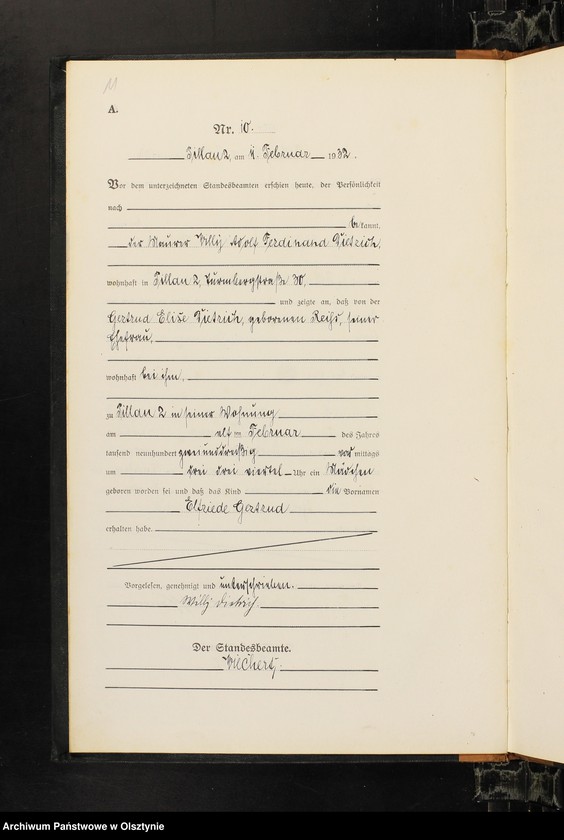 11
A.
Nr. 10.
Pillau 2, am Februar 1932.
Vor dem unterzeichneten Standesbeamten erschien heute, der Persönlichkeit
nach
bekannt,
der Maurer Willy Adolf Ferdinand Dietrich,
wohnhaft in Pillau 2, Turmbergstraße 30,
und zeigte an, daß von der
Gertrud Elise Dietrich, geborenen seiner
Ehefrau,
wohnhaft bei ihm,
zu Pillau 2 in seiner Wohnung
am elf ten Februar des Jahres
tausend neunhundert zweiunddreißig vormittags
um drei drei viertel Uhr ein Mädchen
geboren worden sei und daß das Kind die Vornamen
Elfriede Gertrud
erhalten habe.
Vorgelesen, genehmigt und unterschrieben.
Willy Dietrich.
Der Standesbeamte.
Archiwum Państwowe w Olsztynie